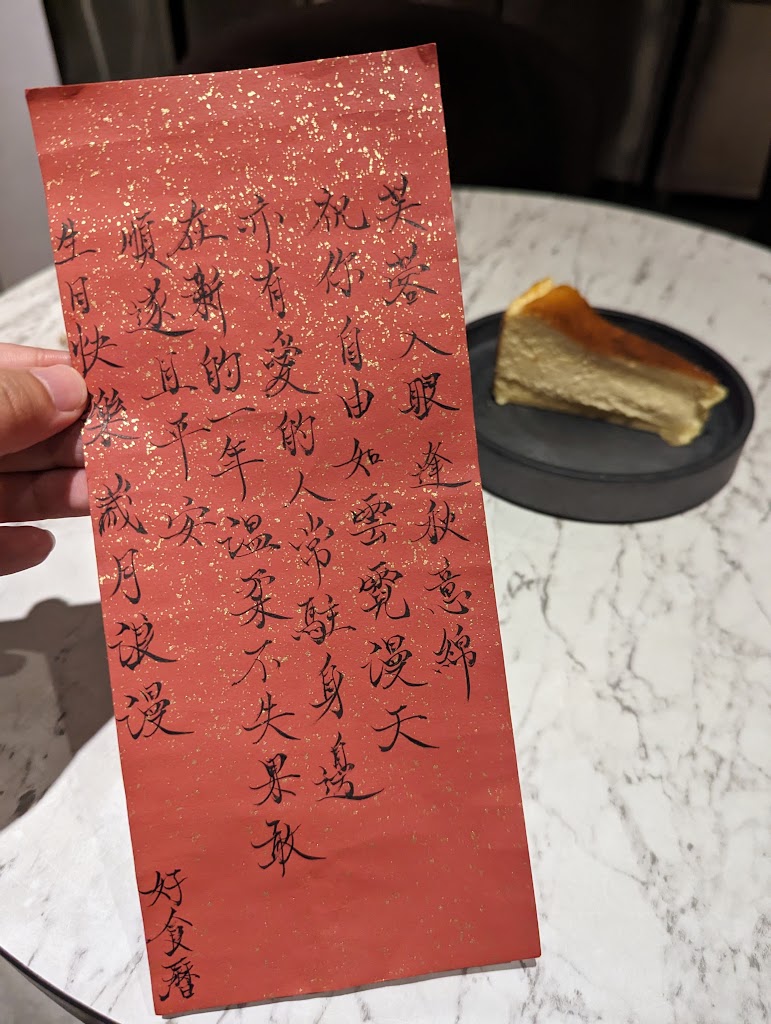 芙蓉入眼逢秋意綿
祝你自由如雲霓漫天
亦有愛的人常駐身邊
在新的一年溫柔不失果敢
順遂且平安
生日快樂 歲月浪漫
好食曆